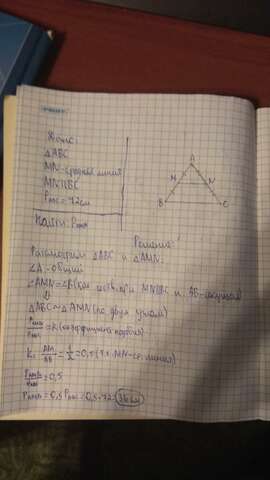 Дано:
△ABC
MN-средняя линия
MN||BC
P ABC = 72см
Найти: P AMN
A
M N
B C
Решение:
Рассмотрим △ABC и △AMN:
∠A-общий
∠AMN=∠B(как соотв. при MN||BC и AB-секущей)
△ABC~△AMN(по двум углам)
P AMN/P ABC=k(коэффициент подобия)
k= AM/AB=1/2=0,5(т.к. MN-ср. линия)
P AMN/P ABC=0,5
P AMN=0,5 P ABC=0,5·72=36см